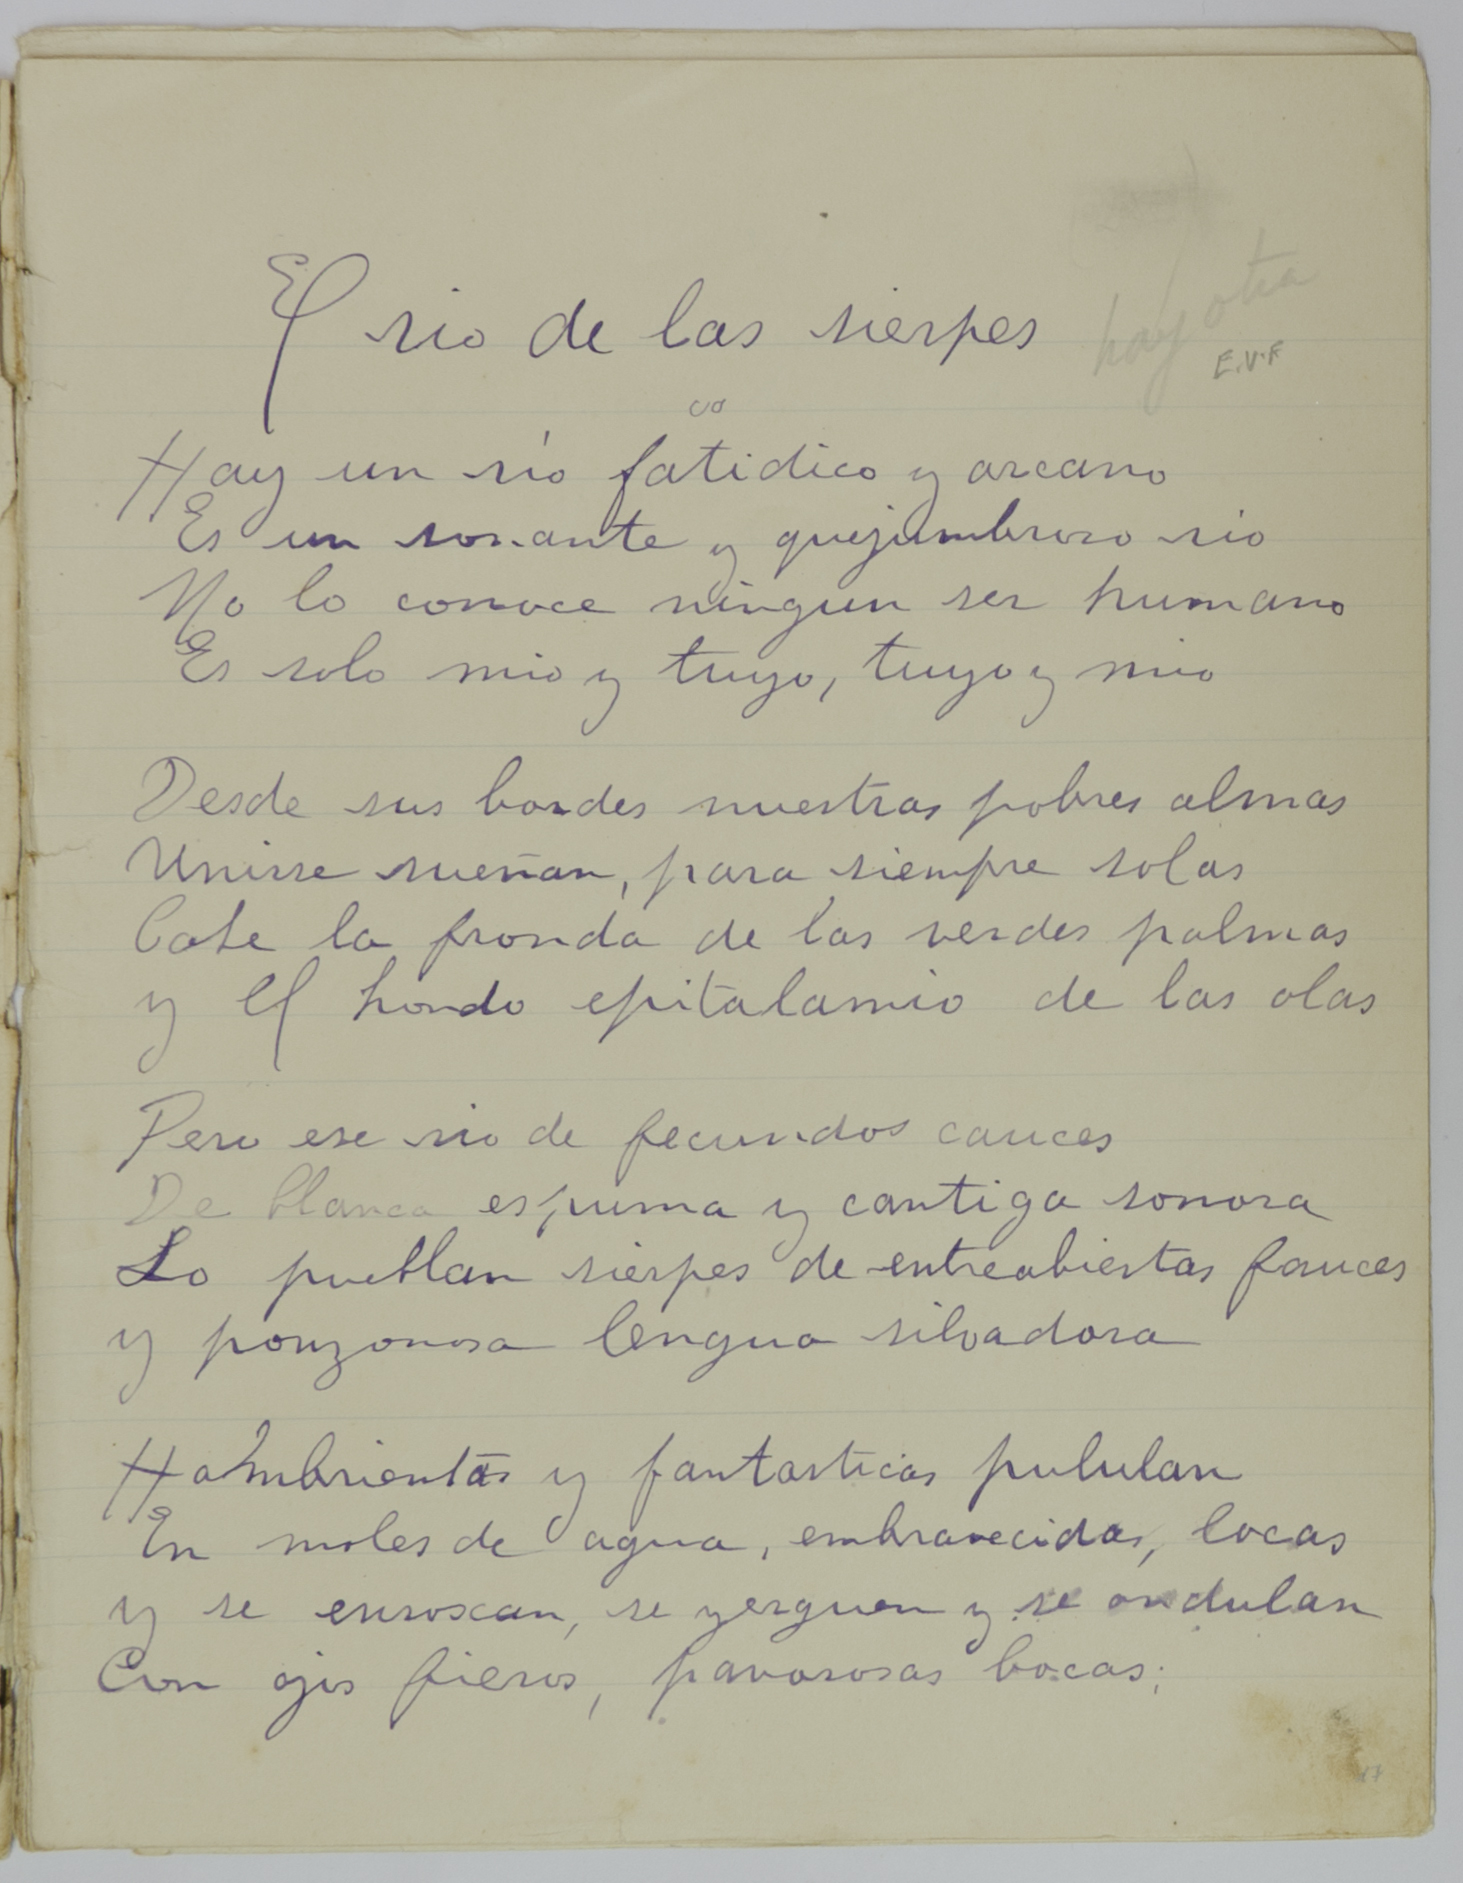 El rio de las sierpes
hay otra
E.V.F
Hay un río fatidico y arcano
Es un sonante y quejumbroso rio
No lo conoce ningun ser humano
Es solo mio y tuyo, tuyo y mio
Desde sus bordes nuestras pobres almas
Unirse sueñan, para siempre solas
Bate la fronda de las verdes palmas
y el hondo epitalamio de las olas
Pero ese rio de fecundos cauces
De blanca espuma y cantiga sonora
Lo pueblan sierpes de entreabiertas fauces
y ponzonosa lengua silvadora
Hambrientas y fantasticas pululan
En moles de agua, embravecidas, locas
y se enroscan, se yerguen y se ondulan
Con ojos fieros, pavorosas bocas;
17